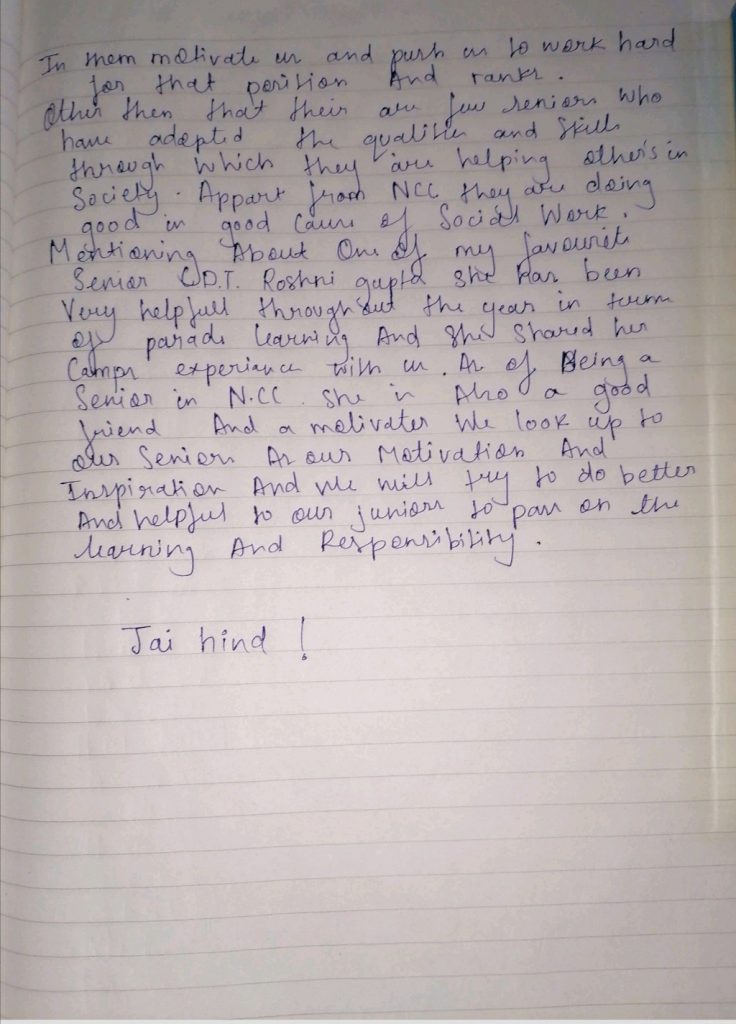 In them motivate us and push us to work hard
for that position And ranks.
Other then that their are few seniors who
have adopted the qualities and skills
through which they are helping other's in
Society. Appart from NCC they are doing
good in good cause of Social Work.
Mentioning About One of my favourite
Senior CDT. Roshni gupta she has been
Very helpfull throughout the year in term
of parade learning And She Shared her
Camps experiance with us. As of Being a
Senior in N.CC. She is Also a good
friend And a motivater We look up to
our Seniors As our Motivation And
Inspiration And We will try to do better
And helpful to our juniors to pass on the
learning And Responsibility.
Jai hind !